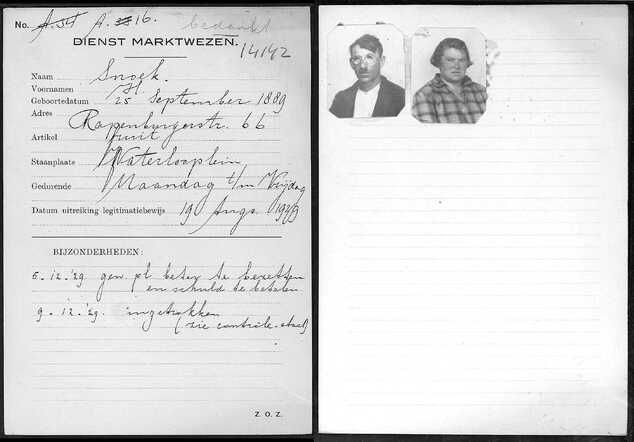 No. A. 54 A. 16. bedankt
DIENST MARKTWEZEN.
14142
Naam Snoek.
Voornamen H.
Geboortedatum 25 September 1889
Adres Rapenburgerstr. 66
Artikel fruit
Staanplaats Waterlooplein
Gedurende Maandag t/m Vrijdag
Datum uitreiking legitimatiebewijs 19 Augs. 1929
BIJZONDERHEDEN:
6.12.'29 gew pl beter te bezetten
en schuld te betalen
9.12.'29. ingetrokken
(zie contrôle-staat)
Z. O. Z.